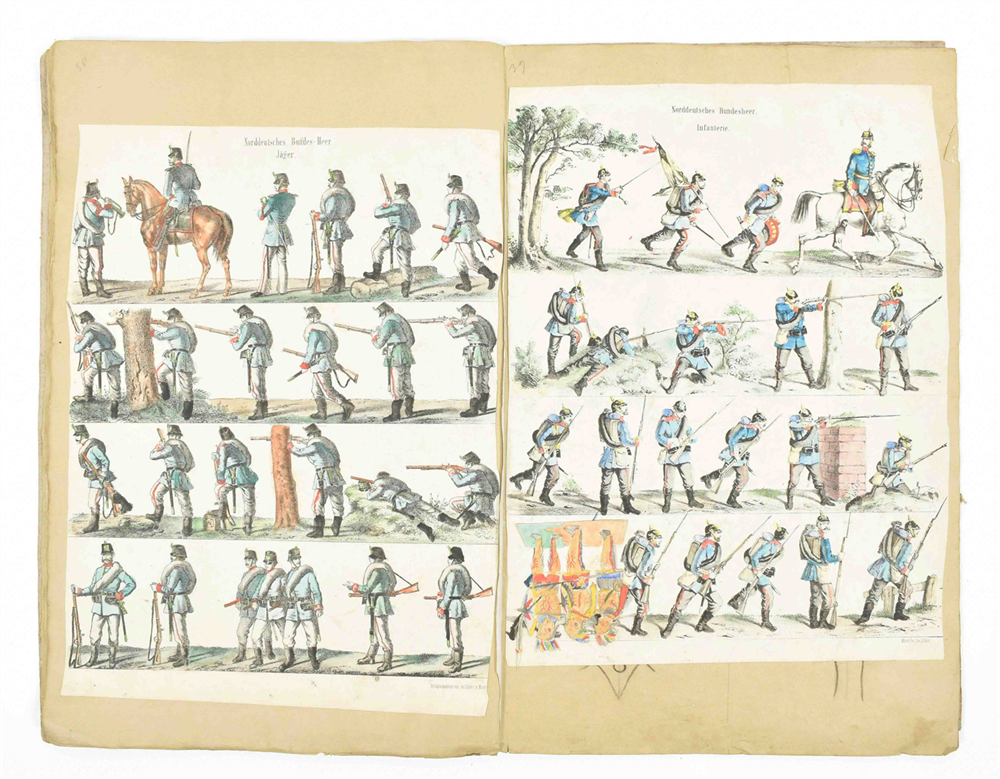 38
Norddeutsches Bundes-Heer
Jäger.
39
Norddeutsches Bundesheer.
Infanterie.